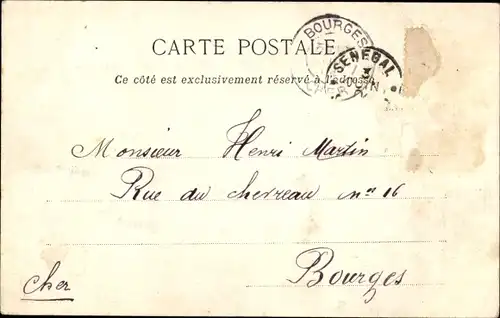 BOURGES
CHER
SENEGAL
JUIN
CARTE POSTALE
Ce côté est exclusivement réservé à l'adresse
Monsieur Henri Martin
Rue du chevreau n° 16
Cher
Bourges